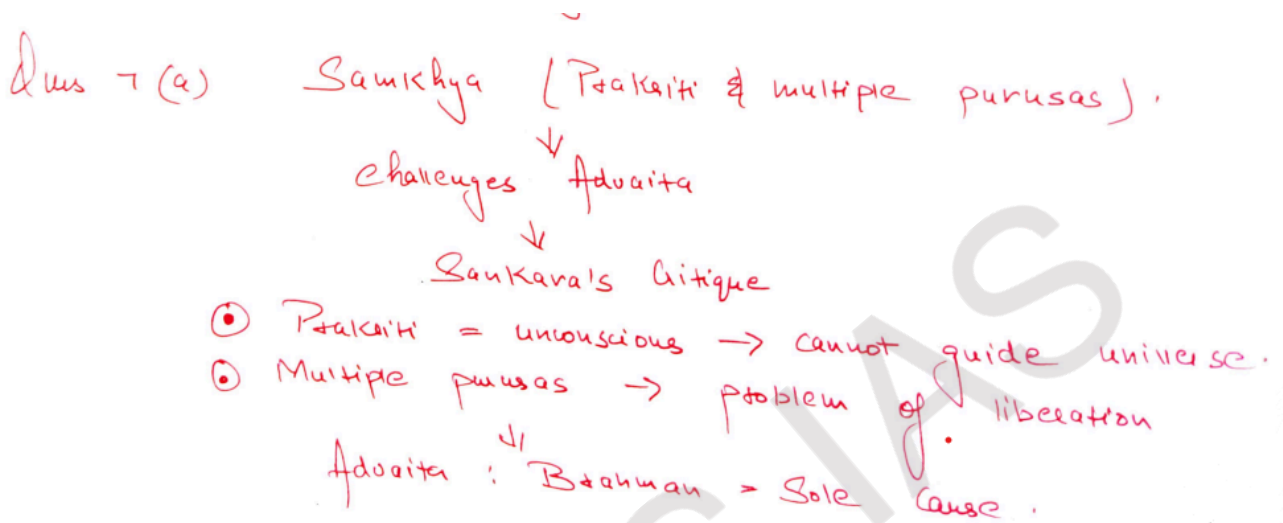 Ques 7 (a) Samkhya (Prakriti & multiple purusas).
↓
challenges Advaita
↓
Sankara's Critique
⊙ Prakriti = unconscious → cannot guide universe.
⊙ Multiple purusas → problem of liberation
↓
Advaita : Brahman = Sole cause.
IAS